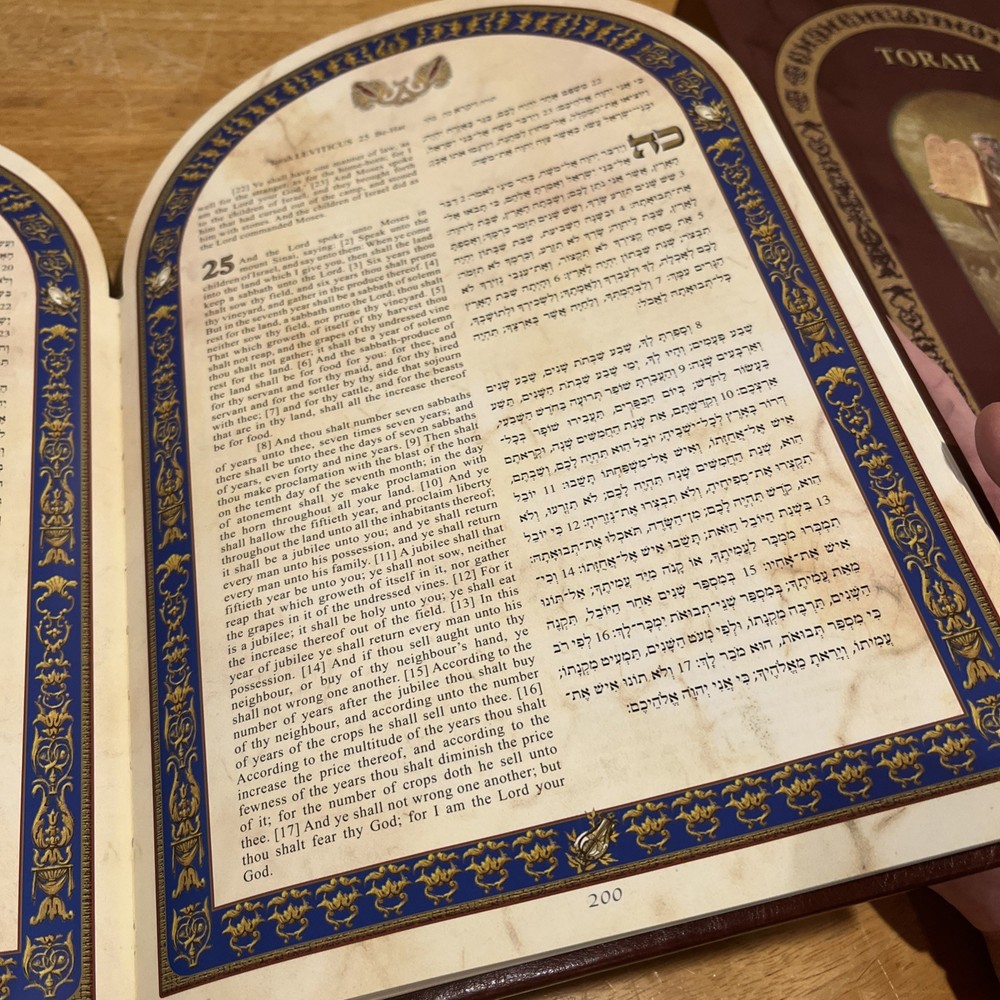 TORAH
Torah LEVITICUS 25 Be-Har
[22] Ye shall have one manner of law, as
well for the stranger, as for the home-born; for I
am the Lord your God. [23] And Moses spoke
to the children of Israel, and they brought forth
him that had cursed out of the camp, and stoned
him with stones. And the children of Israel did as
the Lord commanded Moses.
25 And the Lord spoke unto Moses in
mount Sinai, saying: [2] Speak unto the
children of Israel, and say unto them: When ye come
into the land which I give you, then shall the land
keep a sabbath unto the Lord. [3] Six years thou
shalt sow thy field, and six years thou shalt prune
thy vineyard, and gather in the produce thereof. [4]
But in the seventh year shall be a sabbath of solemn
rest for the land, a sabbath unto the Lord; thou shalt
neither sow thy field, nor prune thy vineyard. [5]
That which groweth of itself of thy harvest thou
shalt not reap, and the grapes of thy undressed vine
thou shalt not gather; it shall be a year of solemn
rest for the land. [6] And the sabbath-produce of
the land shall be for food for you: for thee, and
for thy servant and for thy maid, and for thy hired
servant and for the settler by thy side that sojourn
with thee; [7] and for thy cattle, and for the beasts
that are in thy land, shall all the increase thereof
be for food.
[8] And thou shalt number seven sabbaths
of years unto thee, seven times seven years; and
there shall be unto thee the days of seven sabbaths
of years, even forty and nine years. [9] Then shalt
thou make proclamation with the blast of the horn
on the tenth day of the seventh month; in the day
of atonement shall ye make proclamation with
the horn throughout all your land. [10] And ye
shall hallow the fiftieth year, and proclaim liberty
throughout the land unto all the inhabitants thereof;
it shall be a jubilee unto you; and ye shall return
every man unto his possession, and ye shall return
every man unto his family. [11] A jubilee shall that
fiftieth year be unto you; ye shall not sow, neither
reap that which groweth of itself in it, nor gather
the grapes in it of the undressed vines. [12] For it
is a jubilee; it shall be holy unto you; ye shall eat
the increase thereof out of the field. [13] In this
year of jubilee ye shall return every man unto his
possession. [14] And if thou sell aught unto thy
neighbour, or buy of thy neighbour's hand, ye
shall not wrong one another. [15] According to the
number of years after the jubilee thou shalt buy
of thy neighbour, and according unto the number
of years of the crops he shall sell unto thee. [16]
According to the multitude of the years thou shalt
increase the price thereof, and according to the
fewness of the years thou shalt diminish the price
of it; for the number of crops doth he sell unto
thee. [17] And ye shall not wrong one another; but
thou shalt fear thy God; for I am the Lord your
God.
22 משפט אחד יהיה לכם, כגר כאזרח יהיה:
כי אני יהוה אלהיכם: 23 וידבר משה אל-בני ישראל,
ויוציאו את-המקלל, אל-מחוץ למחנה, וירגמו אתו אבן:
ובני-ישראל עשו, כאשר צוה יהוה את-משה:
כה
וידבר יהוה אל-משה, בהר סיני לאמר: 2 דבר
אל-בני ישראל ואמרת אלהם, כי תבאו אל-
הארץ, אשר אני נתן לכם, ושבתה הארץ, שבת ליהוה:
3 שש שנים תזרע שדך, ושש שנים תזמר כרמך, ואספת
את-תבואתה: 4 ובשנה השביעת, שבת שבתון יהיה
לארץ, שבת ליהוה: שדך לא תזרע, וכרמך לא תזמר:
5 את ספיח קצירך לא תקצור, ואת-ענבי נזירך לא
תבצר: שנת שבתון יהיה לארץ: 6 והיתה שבת הארץ
לכם לאכלה, לך ולעבדך ולאמתך, ולשכירך ולתושבך,
הגרים עמך: 7 ולבהמתך, ולחיה אשר בארצך: תהיה
כל-תבואתה לאכל:
8 וספרת לך, שבע שבתת שנים, שבע שנים
שבע פעמים: והיו לך, ימי שבע שבתת השנים, תשע
וארבעים שנה: 9 והעברת שופר תרועה בחדש השבעי,
בעשור לחדש: ביום הכפרים, תעבירו שופר בכל-
ארצכם: 10 וקדשתם, את שנת החמשים שנה, וקראתם
דרור בארץ לכל-ישביה: יובל הוא תהיה לכם, ושבתם,
איש אל-אחזתו, ואיש אל-משפחתו תשבו: 11 יובל
הוא, שנת החמשים שנה תהיה לכם: לא תזרעו, ולא
תקצרו את-ספיחיה, ולא תבצרו את-נזריה: 12 כי יובל
הוא, קדש תהיה לכם: מן-השדה, תאכלו את-תבואתה:
13 בשנת היובל הזאת, תשבו איש אל-אחזתו: 14 וכי-
תמכרו ממכר לעמיתך, או קנה מיד עמיתך: אל-תונו
איש את-אחיו: 15 במספר שנים אחר היובל, תקנה
מאת עמיתך: במספר שני-תבואת ימכר-לך: 16 לפי רב
השנים, תרבה מקנתו, ולפי מעט השנים, תמעיט מקנתו:
כי מספר תבואת, הוא מכר לך: 17 ולא תונו איש את-
עמיתו, ויראת מאלהיך, כי אני יהוה אלהיכם:
200